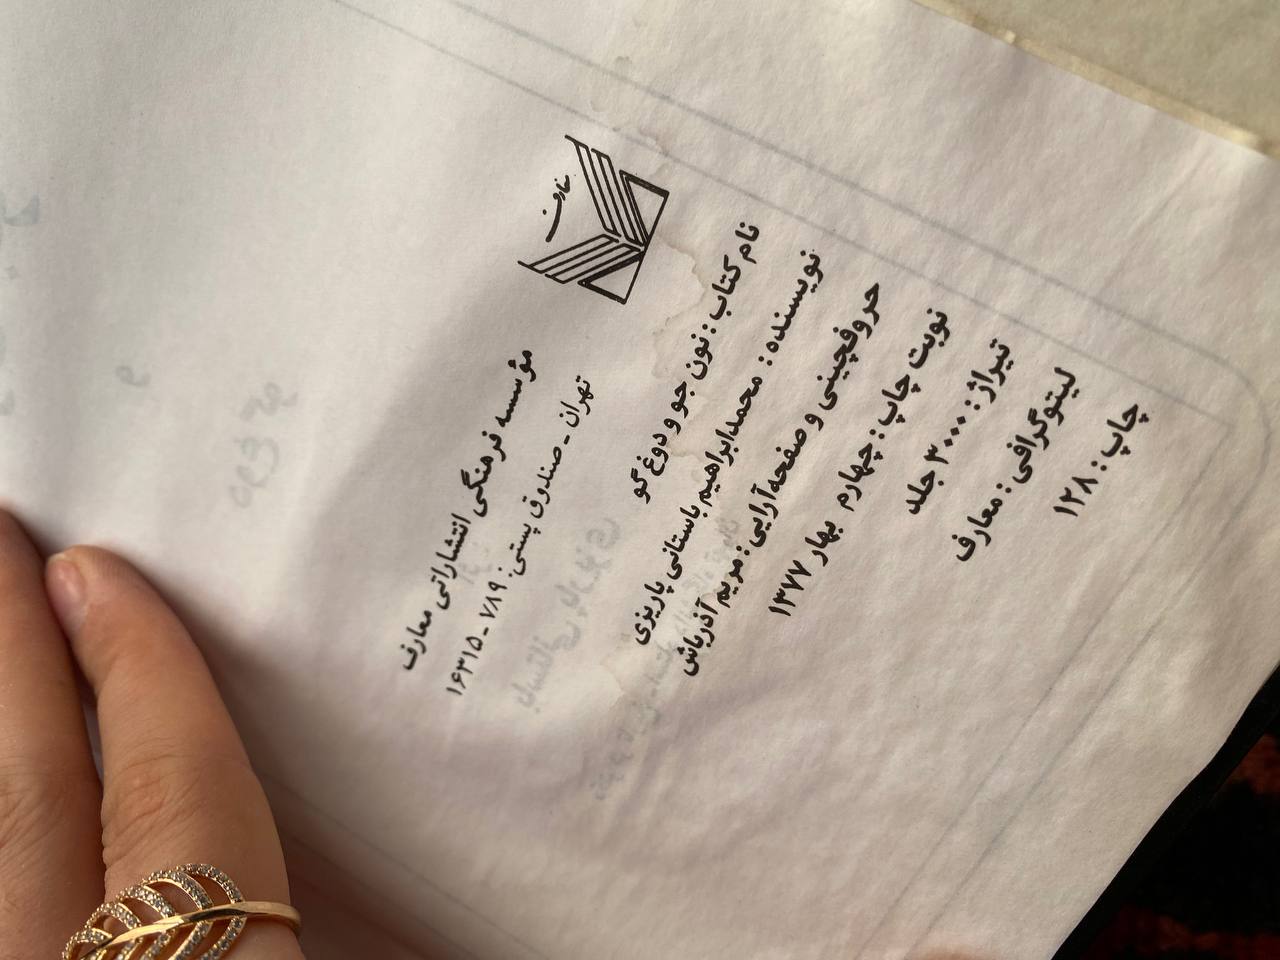 معارف
مؤسسه فرهنگی انتشاراتی معارف
تهران ـ صندوق پستی: ۷۸۹ ـ ۱۶۳۱۵
نام کتاب : نون جو و دوغ گو
نویسنده : محمدابراهیم باستانی پاریزی
حروفچینی و صفحه‌آرایی : مریم آذرباش
نوبت چاپ : چهارم بهار ۱۳۷۷
تیراژ : ۳۰۰۰ جلد
لیتوگرافی : معارف
چاپ : ۱۲۸